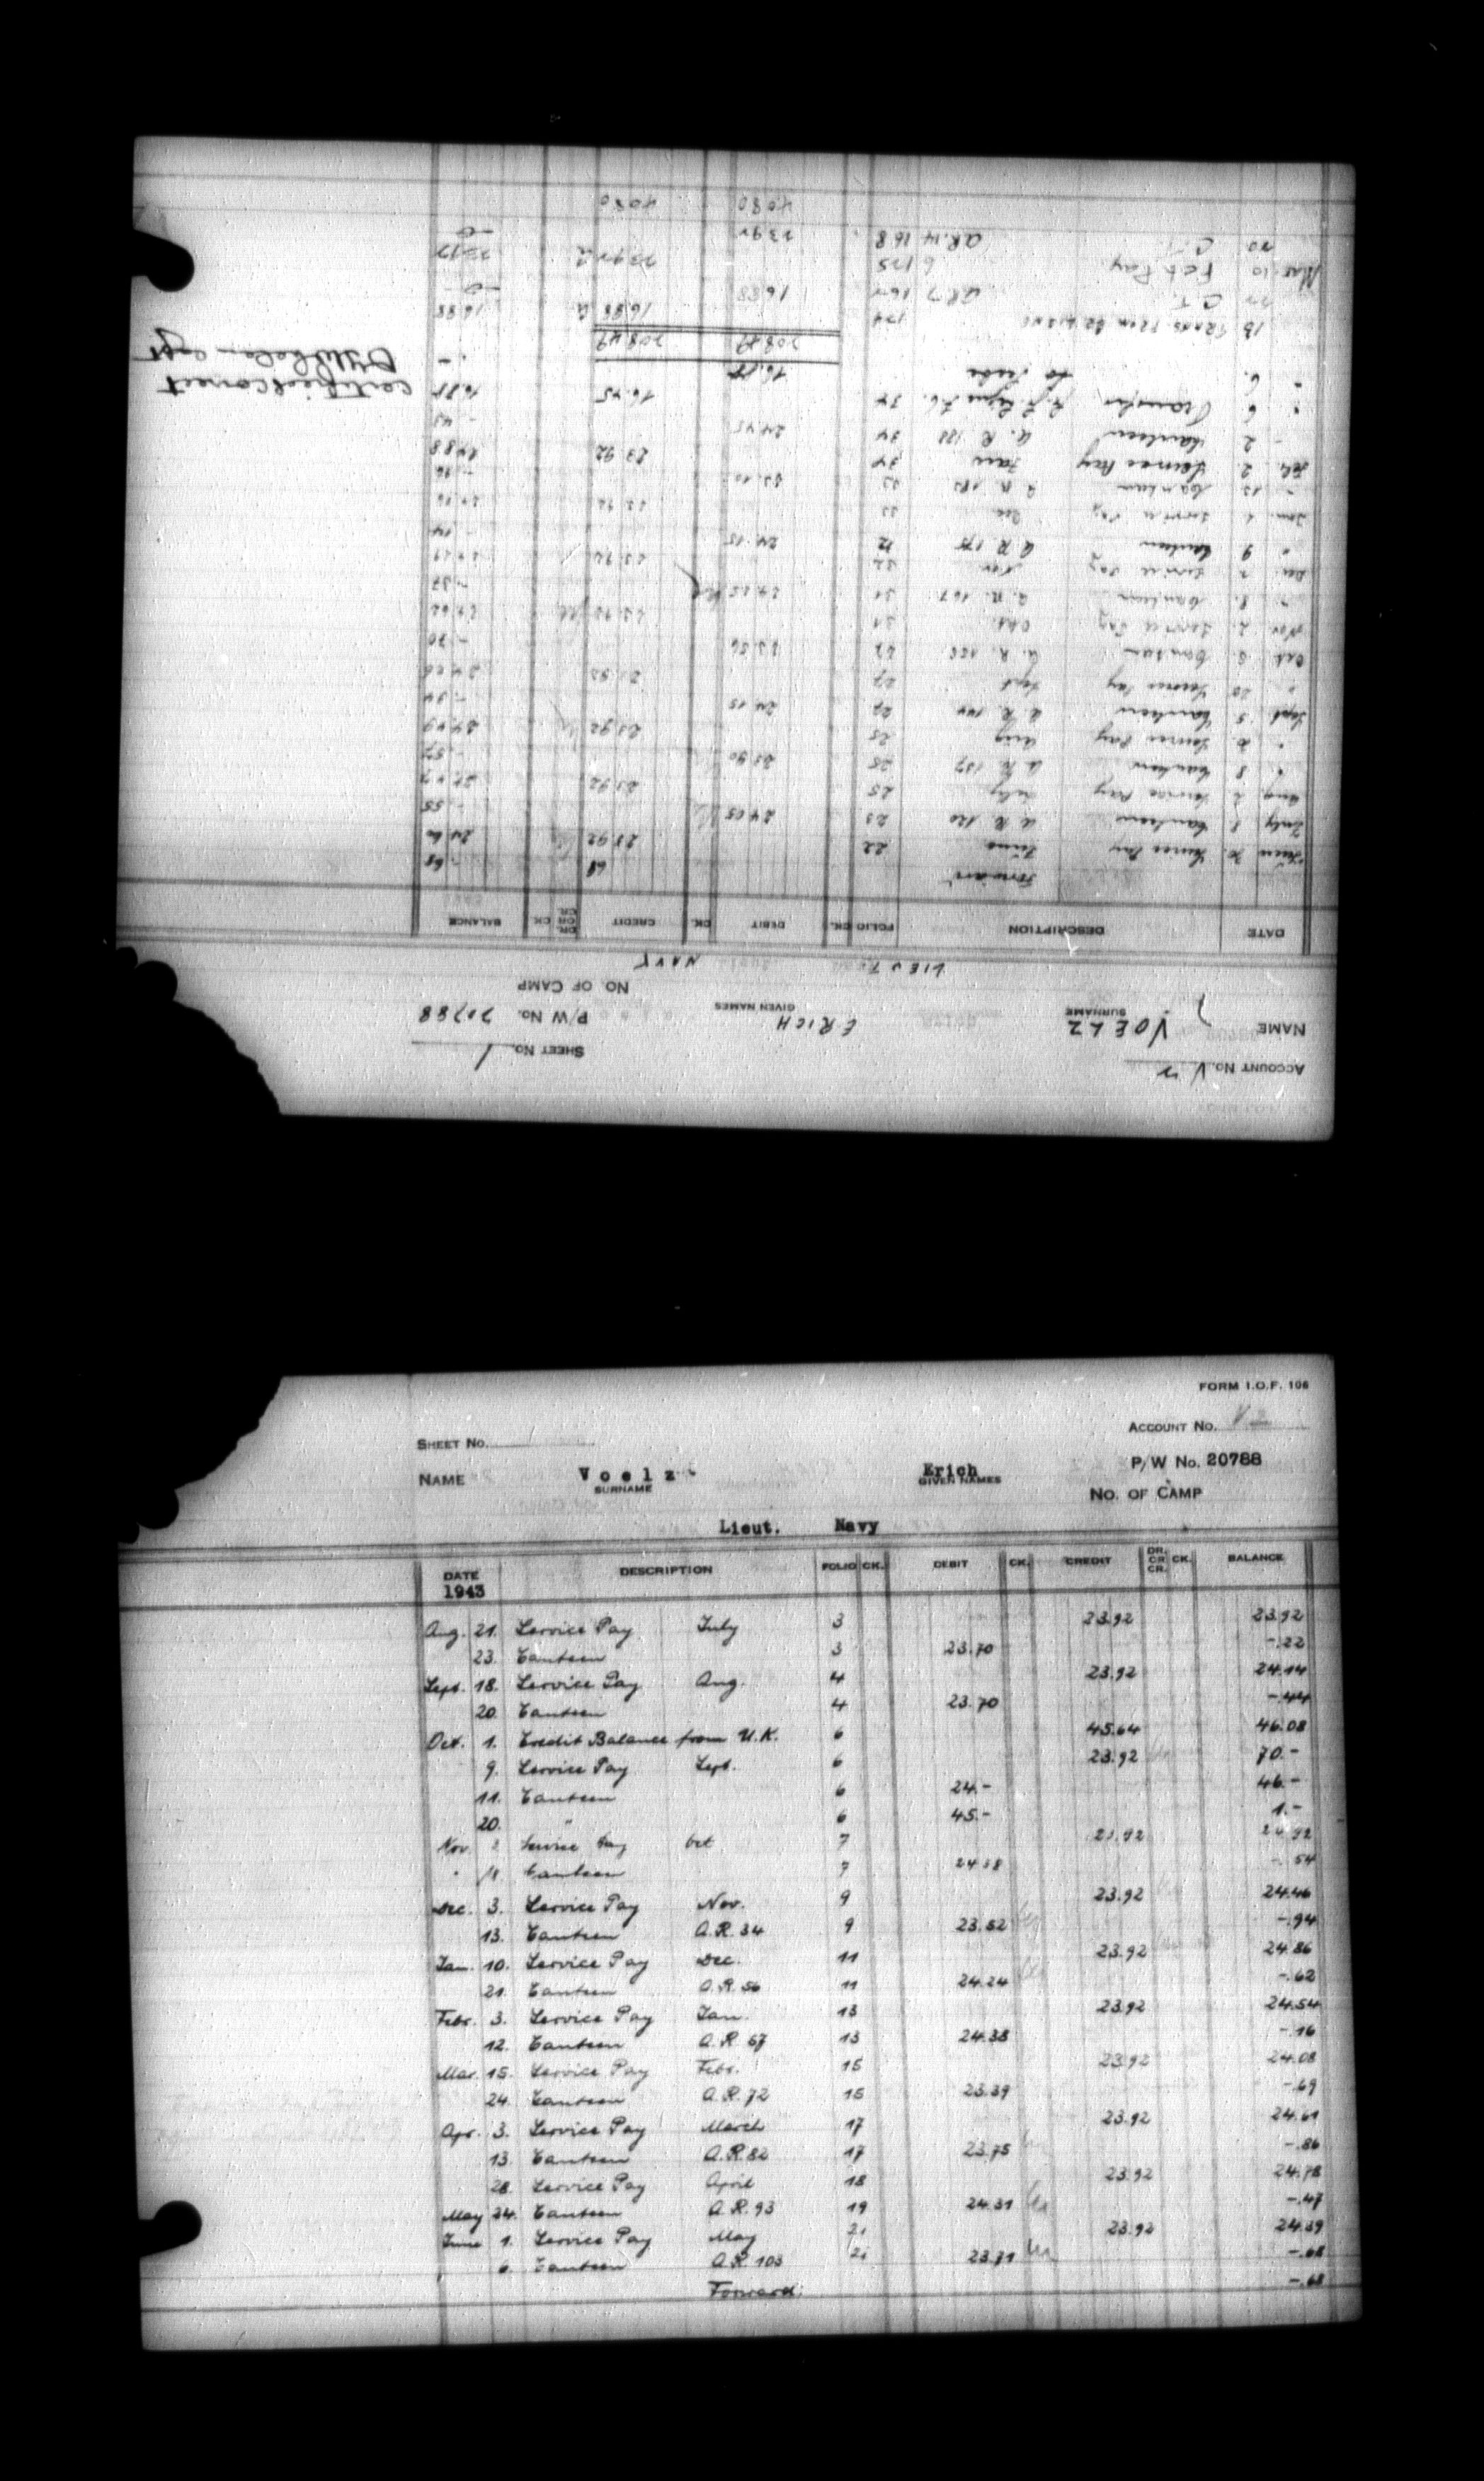 ACCOUNT No. V 2
SHEET No. 1
NAME VOELZ ERICH P/W No. 20788
SURNAME GIVEN NAMES
NO. OF CAMP
LIEUT NAVY
DATE DESCRIPTION FOLIO CK. DEBIT CK. CREDIT DR. OR CR. CK. BALANCE
Forward 68 -.68
June 30. Service Pay June 22 23.92 24.60
July 8 Canteen A.R. 120 23 24.05 -.55
Aug. 2 Service Pay July 25 23.92 24.47
" 8 Canteen A.R. 137 25 23.90 -.57
Service Pay Aug 25 23.92 24.49
Sept. 5 Canteen A.R. 144 27 24.15 -.34
" 30 Service Pay Sept 27 23.92 24.26
Oct. Canteen A.R. 27 23.56 -.70
Nov. 2. Service Pay Okt. 31 23.92 24.62
" 8. Canteen A.R. 167 31 24.25 -.37
Dec. 2 Service Pay Nov 32 23.92 24.29
" 9 Canteen A.R. 175 32 24.15 -.14
Jan. Service Pay Dec 33 23.92
" 13 Canteen A.R. 33
Feb. 2 Service Pay Jan 34 23.92 24.88
" 2 Canteen A.R. 188 34 24.45 -.43
" 6 Transfer 34 16.45 16.88
" 6. to 16.88 -
208.49 208.49
Certified correct
Capt
18 TRANS FROM 174 16.88 16.88
C.T. A.R. 7 16.88 -0-
Mar 10 Feb Pay 6 175 23.92
20 C.T. A.R. 14 168 23.92 -0-
40.80 40.80
FORM I.O.F. 106
ACCOUNT No. V 2
SHEET No. 1
P/W No. 20788
NAME Voelz Erich
SURNAME GIVEN NAMES
NO. OF CAMP
Lieut. Navy
DATE DESCRIPTION FOLIO CK. DEBIT CK. CREDIT DR. OR CR. CK. BALANCE
1943
Aug. 21. Service Pay July 3 23.92 23.92
23. Canteen 3 23.70 -.22
Sept. 18. Service Pay Aug. 4 23.92 24.14
20. Canteen 4 23.70 -.44
Oct. 1. Credit Balance from U.K. 6 45.64 46.08
9. Service Pay Sept. 6 23.92 70.-
11. Canteen 6 24.- 46.-
20. " 6 45.- 1.-
Nov. Service Pay Oct 7 23.92 24.92
" Canteen 7 24.38 -.54
Dec. 3. Service Pay Nov. 9 23.92 24.46
13. Canteen A.R. 34 9 23.52 -.94
Jan. 10. Service Pay Dec. 11 23.92 24.86
21. Canteen A.R. 56 11 24.24 -.62
Febr. 3. Service Pay Jan. 13 23.92 24.54
12. Canteen A.R. 67 13 24.38 -.16
Mar. 15. Service Pay Febr. 15 23.92 24.08
24. Canteen A.R. 72 15 23.39 -.69
Apr. 3. Service Pay March 17 23.92 24.61
13. Canteen A.R. 82 17 23.75 -.86
28. Service Pay April 18 23.92 24.78
May 24. Canteen A.R. 93 19 24.31 -.47
June 1. Service Pay May 21 23.92 24.39
6. Canteen A.R. 103 21 23.71 -.68
Forward. -.68